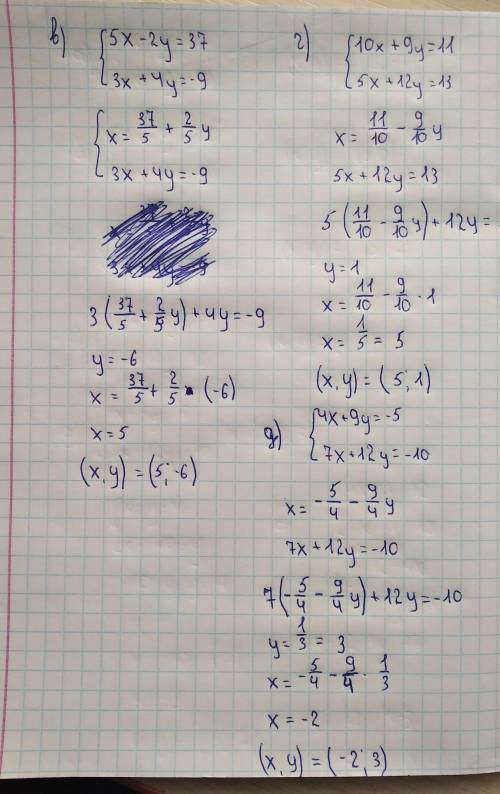 в)
{ 5x - 2y = 37
3x + 4y = -9
{ x = 37/5 + 2/5 y
3x + 4y = -9
3(37/5 + 2/5 y) + 4y = -9
y = -6
x = 37/5 + 2/5 · (-6)
x = 5
(x, y) = (5; -6)
г)
{ 10x + 9y = 11
5x + 12y = 13
x = 11/10 - 9/10 y
5x + 12y = 13
5(11/10 - 9/10 y) + 12y =
y = 1
x = 11/10 - 9/10 · 1
x = 1/5 = 5
(x, y) = (5; 1)
д)
{ 4x + 9y = -5
7x + 12y = -10
x = -5/4 - 9/4 y
7x + 12y = -10
7(-5/4 - 9/4 y) + 12y = -10
y = 1/3 = 3
x = -5/4 - 9/4 · 1/3
x = -2
(x, y) = (-2; 3)